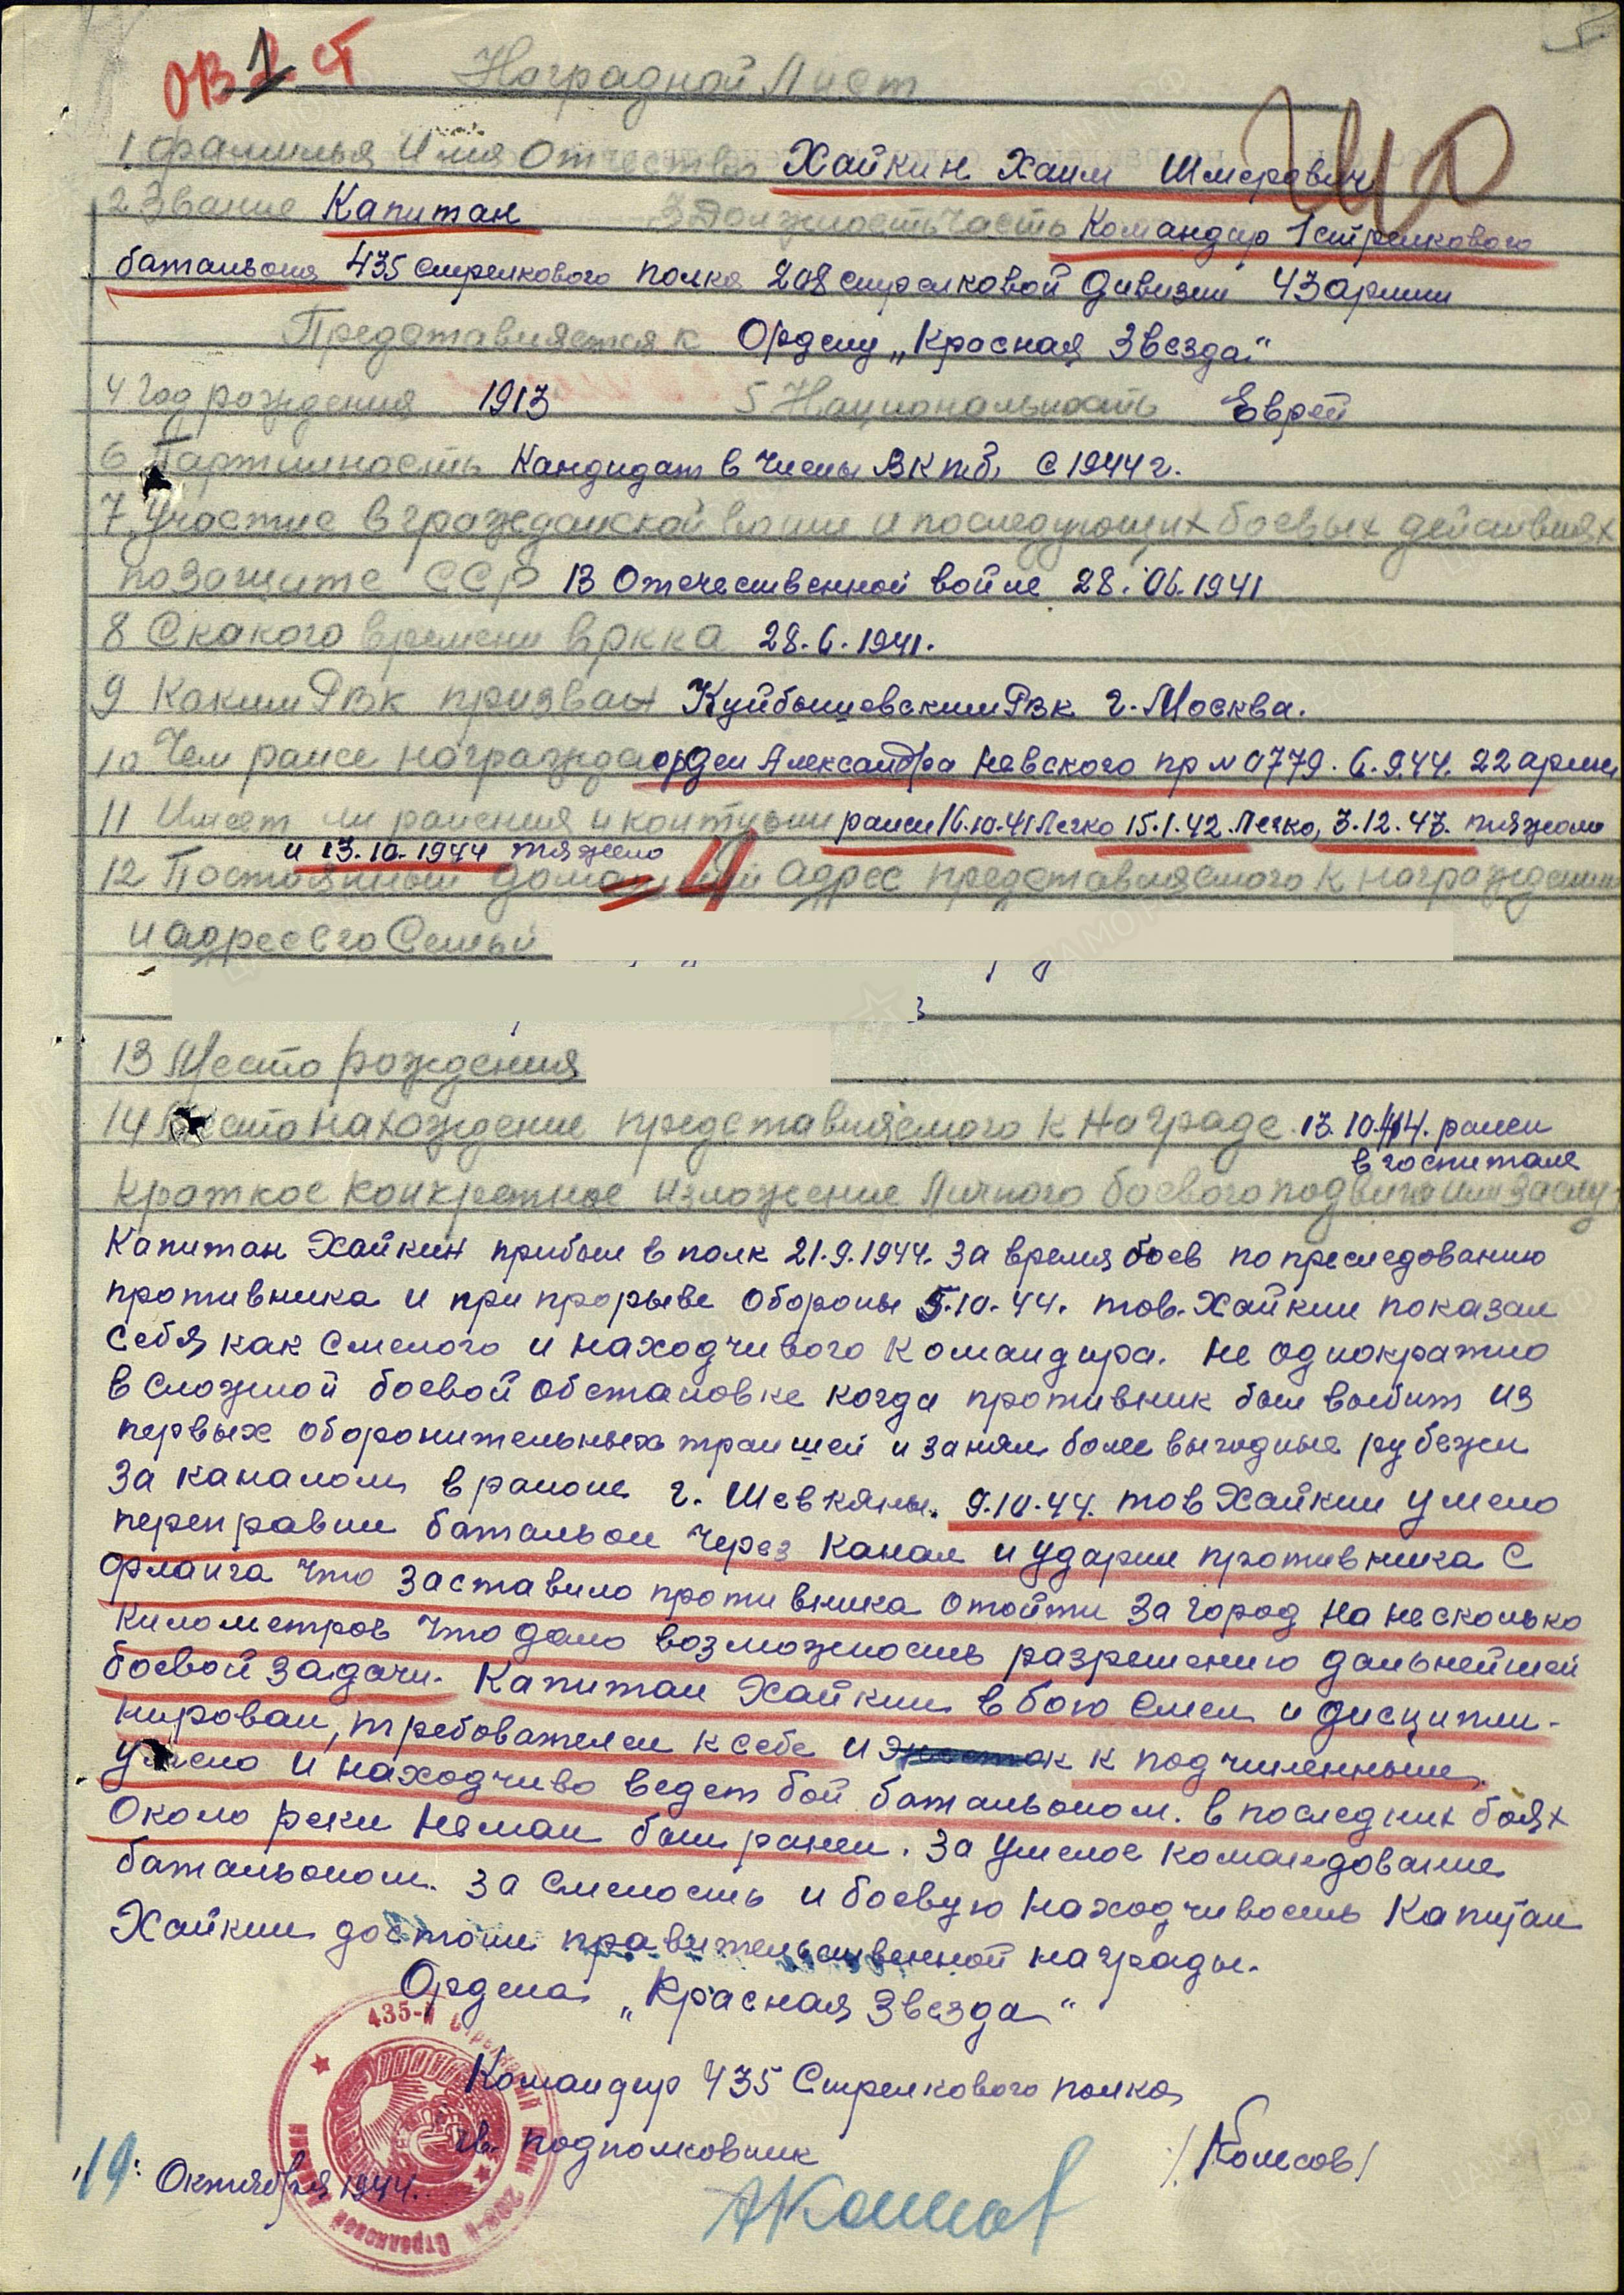 ОВ 1 ст
Наградной Лист
1. Фамилья Имя Отчество Хайкин Хаим Шмерович
2 Звание Капитан 3 Должность часть Командир 1 стрелкового
батальона 435 стрелкового полка 208 стрелковой дивизии 43 армии
Представляется к Ордену „Красная Звезда"
4 Год рождения 1913 5 Национальность Еврей
6 Партийность Кандидат в члены ВКПб. с 1944 г.
7 Участие в гражданской войне и последующих боевых действиях
по защите ССР В Отечественной войне 28.06.1941
8 С какого времени в РККА 28.6.1941.
9 Каким РВК призван Куйбышевским РВК г. Москва.
10 Чем ранее награжда орден Александра Невского пр № 0779. 6.9.44. 22 армии
11 Имеет ли ранения и контузии ранен 16.10.41 Легко 15.1.42. Легко, 3.12.43. тяжело
и 13.10.1944 тяжело
12 Постоянный домашний адрес представляемого к награждению
и адрес его Семьи
13 Место рождения
14 Место нахождение представляемого к Награде 13.10.44. ранен
в госпитале
Краткое конкретное изложение Личного боевого подвига или заслуг
Капитан Хайкин прибыл в полк 21.9.1944. За время боев по преследованию
противника и при прорыве обороны 5.10.44. тов. Хайкин показал
себя как смелого и находчивого командира. Не однократно
в сложной боевой обстановке когда противник был выбит из
первых оборонительных траншей и занял более выгодные рубежи
за каналом в районе г. Шевкяны. 9.10.44. тов Хайкин умело
переправил батальон через канал и ударил противника с
фланга что заставило противника отойти за город на несколько
километров что дало возможность разрешению дальнейшей
боевой задачи. Капитан Хайкин в бою смел и дисципли-
нирован, требователен к себе и к подчиненным.
Умело и находчиво ведет бой батальоном. В последних боях
Около реки Неман был ранен. За умелое командование
батальоном. за смелость и боевую находчивость Капитан
Хайкин достоин правительственной награды.
Ордена „Красная Звезда"
Командир 435 Стрелкового полка
гв. подполковник /Комсов/
„19" Октября 1944.
435-й Стрелковый полк 208-й Стрелковой